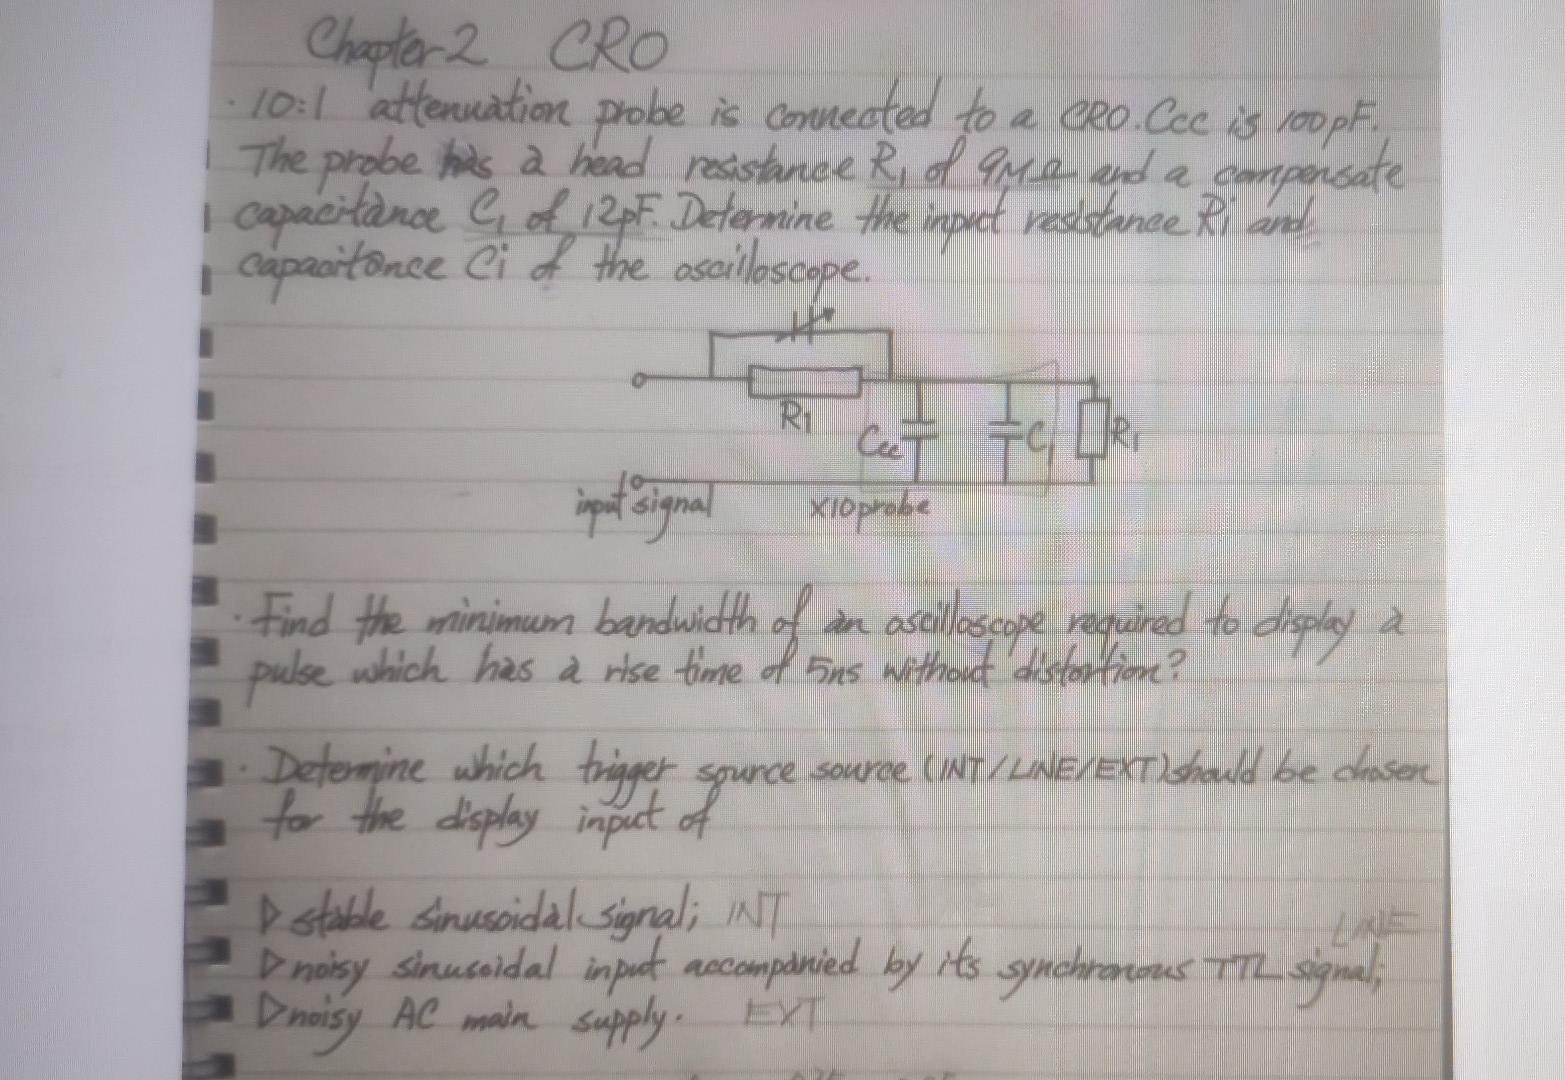 Chapter 2 CRO
· 10:1 attenuation probe is connected to a CRO. Ccc is 100pF.
The probe has a head resistance R1 of 9MΩ and a compensate
capacitance C1 of 12pF. Determine the input resistance Ri and
capacitance Ci of the oscilloscope.
R1
Ccc
C1
R1
input signal
X10 probe
· Find the minimum bandwidth of an oscilloscope required to display a
pulse which has a rise time of 5ns without distortion?
· Determine which trigger source source (INT/LINE/EXT) should be chosen
for the display input of
▷ stable sinusoidal signal; INT
LINE
▷ noisy sinusoidal input accompanied by its synchronous TTL signal;
▷ noisy AC main supply. EXT